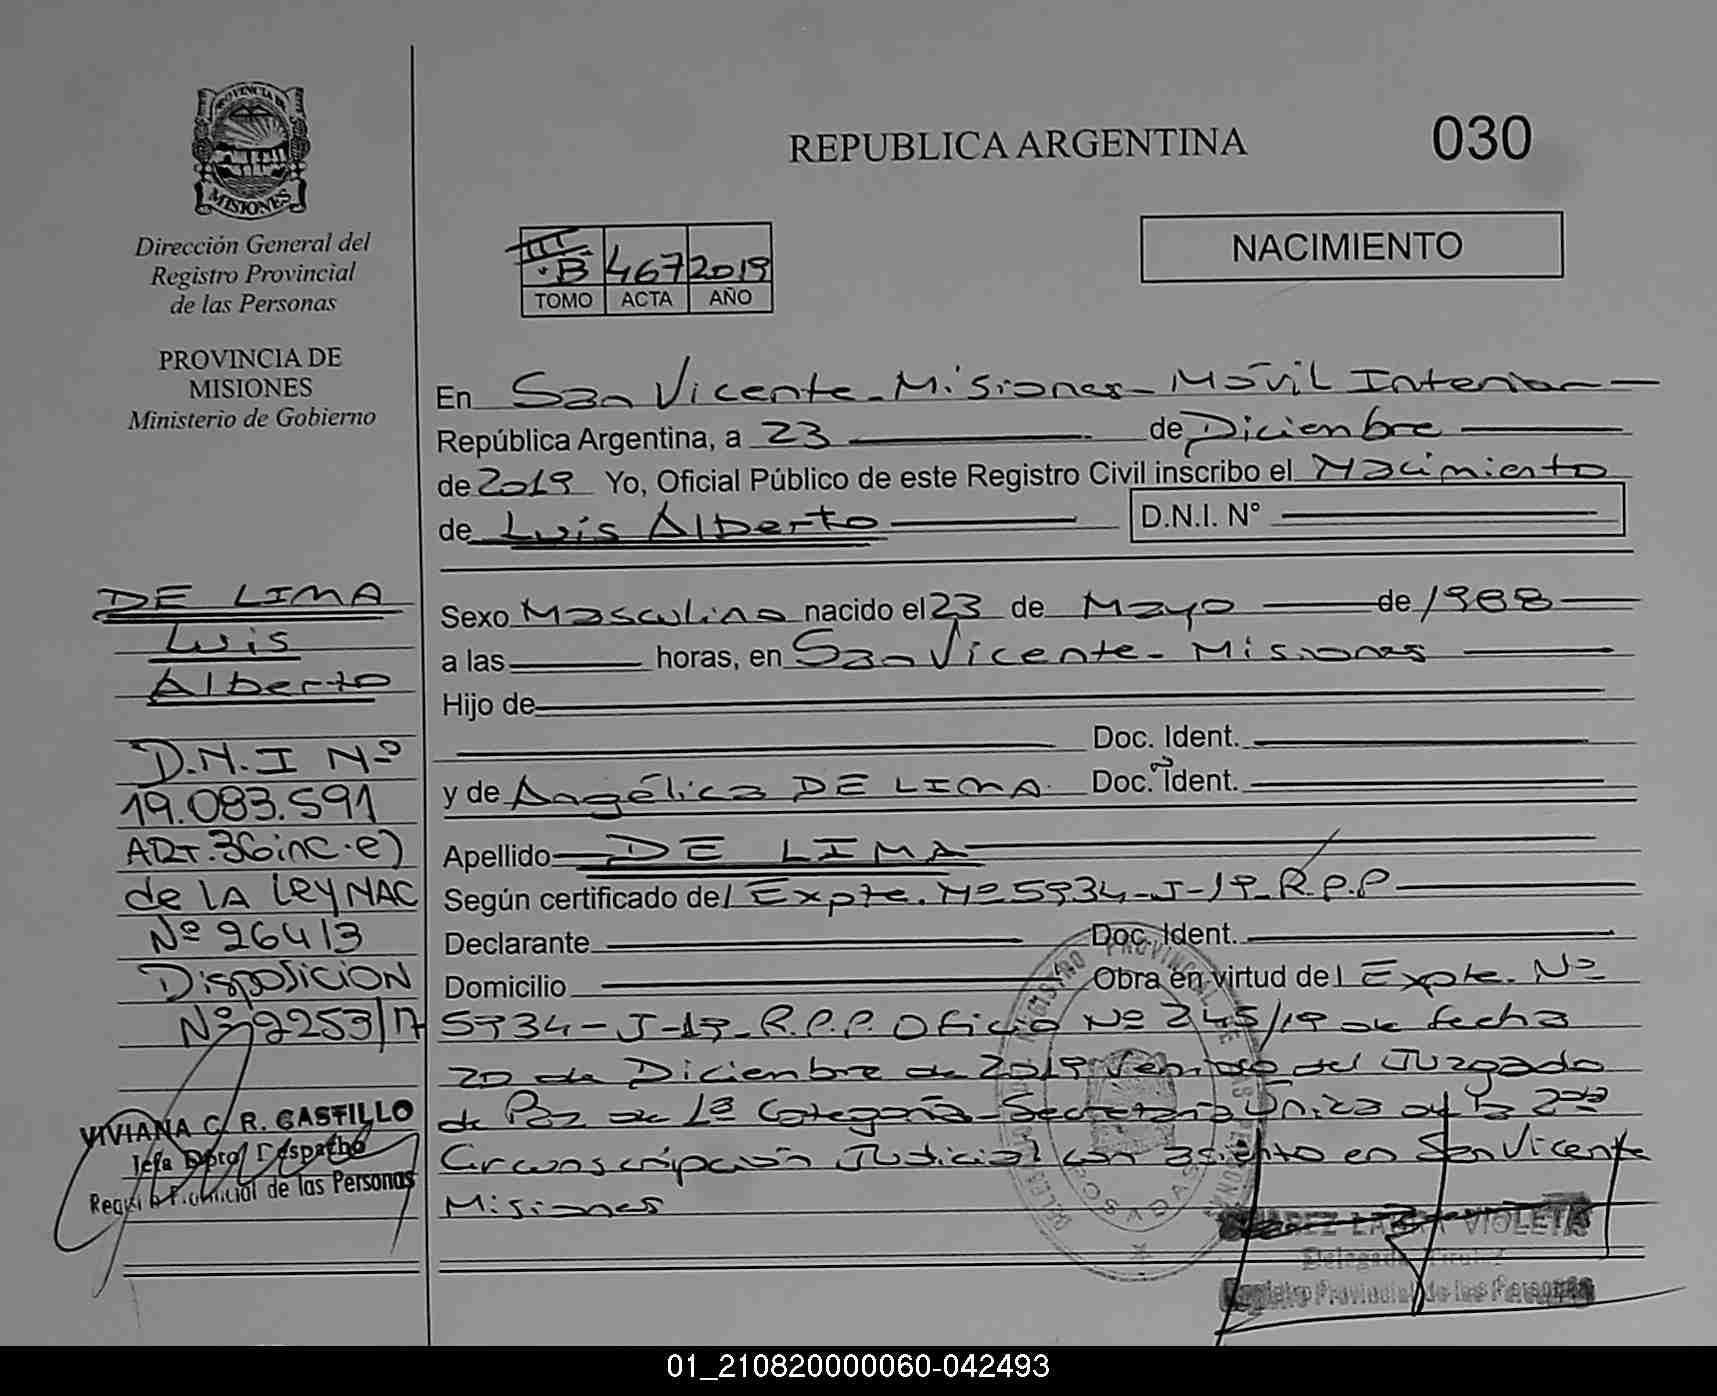 PROVINCIA DE
MISIONES
Dirección General del
Registro Provincial
de las Personas
PROVINCIA DE
MISIONES
Ministerio de Gobierno
REPUBLICA ARGENTINA
030
NACIMIENTO
III
B 467 2019
TOMO ACTA AÑO
En San Vicente - Misiones - Móvil Interior
República Argentina, a 23 de Diciembre
de 2019 Yo, Oficial Público de este Registro Civil inscribo el Nacimiento
de Luis Alberto D.N.I. N°
Sexo Masculino nacido el 23 de Mayo de 1988
a las horas, en San Vicente - Misiones
Hijo de
Doc. Ident.
y de Angélica DE LIMA Doc. Ident.
Apellido DE LIMA
Según certificado del Expte. Nº 5934-J-19-R.P.P
Declarante Doc. Ident.
Domicilio Obra en virtud del Expte. Nº
5934-J-19-R.P.P. Oficio Nº 245/19 de fecha
20 de Diciembre de 2019 del Juzgado
de Paz de 1ª Categoría - Secretaría Única de la 2da
Circunscripción Judicial con asiento en San Vicente
Misiones
DE LIMA
Luis
Alberto
D.N.I Nº
19.083.591
ART.36inc.e)
de LA LeyNAC
Nº 26413
Disposicion
Nº 2253/17
VIVIANA C. R. CASTILLO
Jefa Dpto. Despacho
Registro Provincial de las Personas
VIOLETA
Registro Provincial de las Personas
01_210820000060-042493